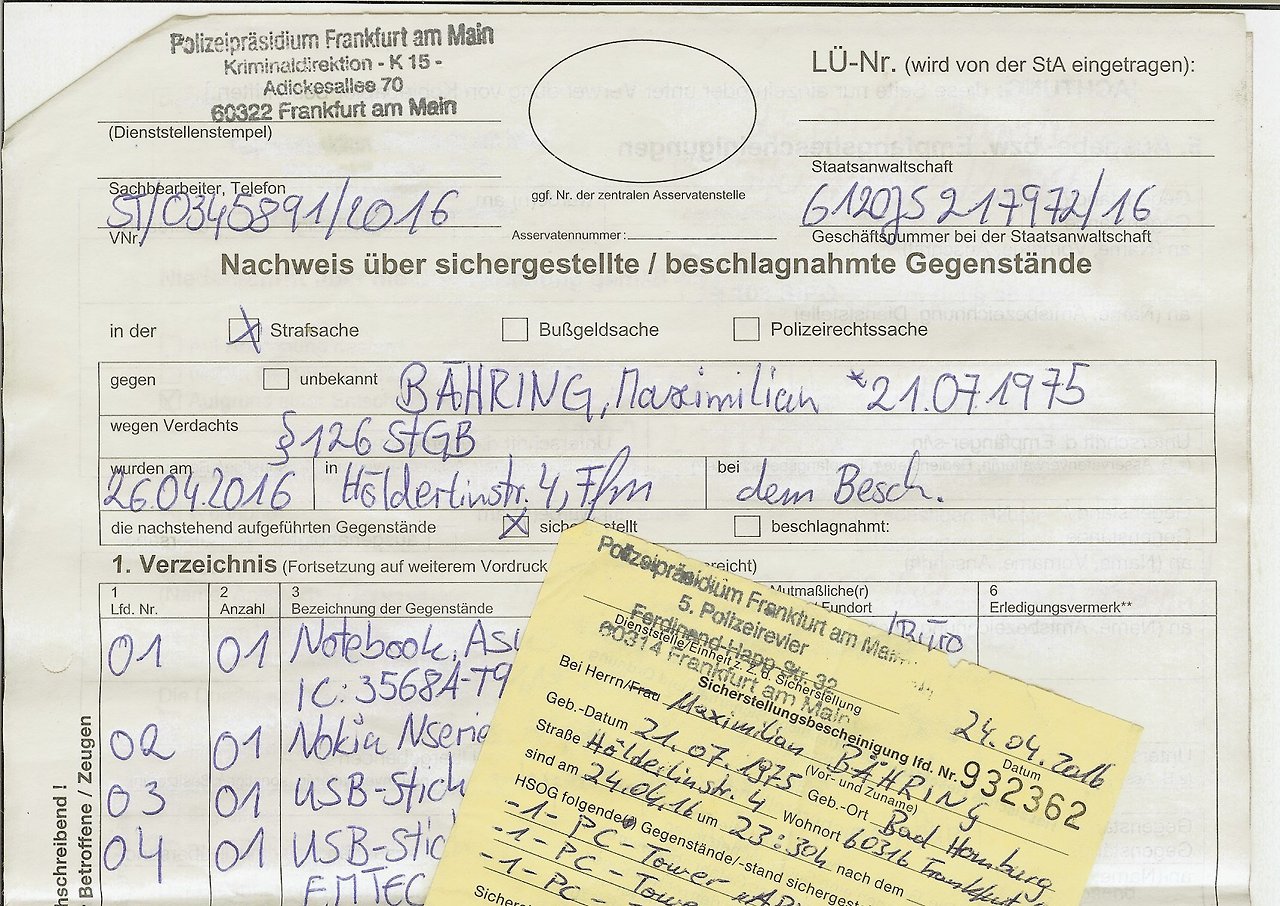 Polizeipräsidium Frankfurt am Main
Kriminaldirektion - K 15 -
Adickesallee 70
60322 Frankfurt am Main
(Dienststellenstempel)
Sachbearbeiter, Telefon
ST/0345891/2016
VNr.
ggf. Nr. der zentralen Asservatenstelle
Asservatennummer:
LÜ-Nr. (wird von der StA eingetragen):
Staatsanwaltschaft
6120JS 217972/16
Geschäftsnummer bei der Staatsanwaltschaft
Nachweis über sichergestellte / beschlagnahmte Gegenstände
in der Strafsache Bußgeldsache Polizeirechtssache
gegen unbekannt BÄHRING, Maximilian *21.07.1975
wegen Verdachts § 126 StGB
wurden am 26.04.2016 in Hölderlinstr. 4, Ffm bei dem Besch.
die nachstehend aufgeführten Gegenstände beschlagnahmt:
1. Verzeichnis (Fortsetzung auf weiterem Vordruck
1 2 3 Mutmaßliche(r) 6
Lfd. Nr. Anzahl Bezeichnung der Gegenstände Fundort Erledigungsvermerk**
01 01 Notebook, /Büro
IC: 3568A-T9
02 01 Nokia
03 01 USB-Stick
04 01 USB-Stick
EMTEC
Betroffene / Zeugen
Polizeipräsidium Frankfurt am Main
5. Polizeirevier
Ferdinand-Happ-Str. 32
60314 Frankfurt am Main
Dienststelle/Einheit z. Z. d. Sicherstellung
24.04.2016
Datum
Sicherstellungsbescheinigung lfd. Nr. 932362
Bei Herrn/Frau Maximilian BÄHRING
(Vor- und Zuname)
Geb.-Datum 21.07.1975 Geb.-Ort Bad Homburg
Straße Hölderlinstr. 4 Wohnort 60316 Frankfurt
sind am 24.04.16 um 23:30h nach dem
HSOG folgende Gegenstände/-stand
-1- PC-Tower
-1- PC-Tower
-1- PC-